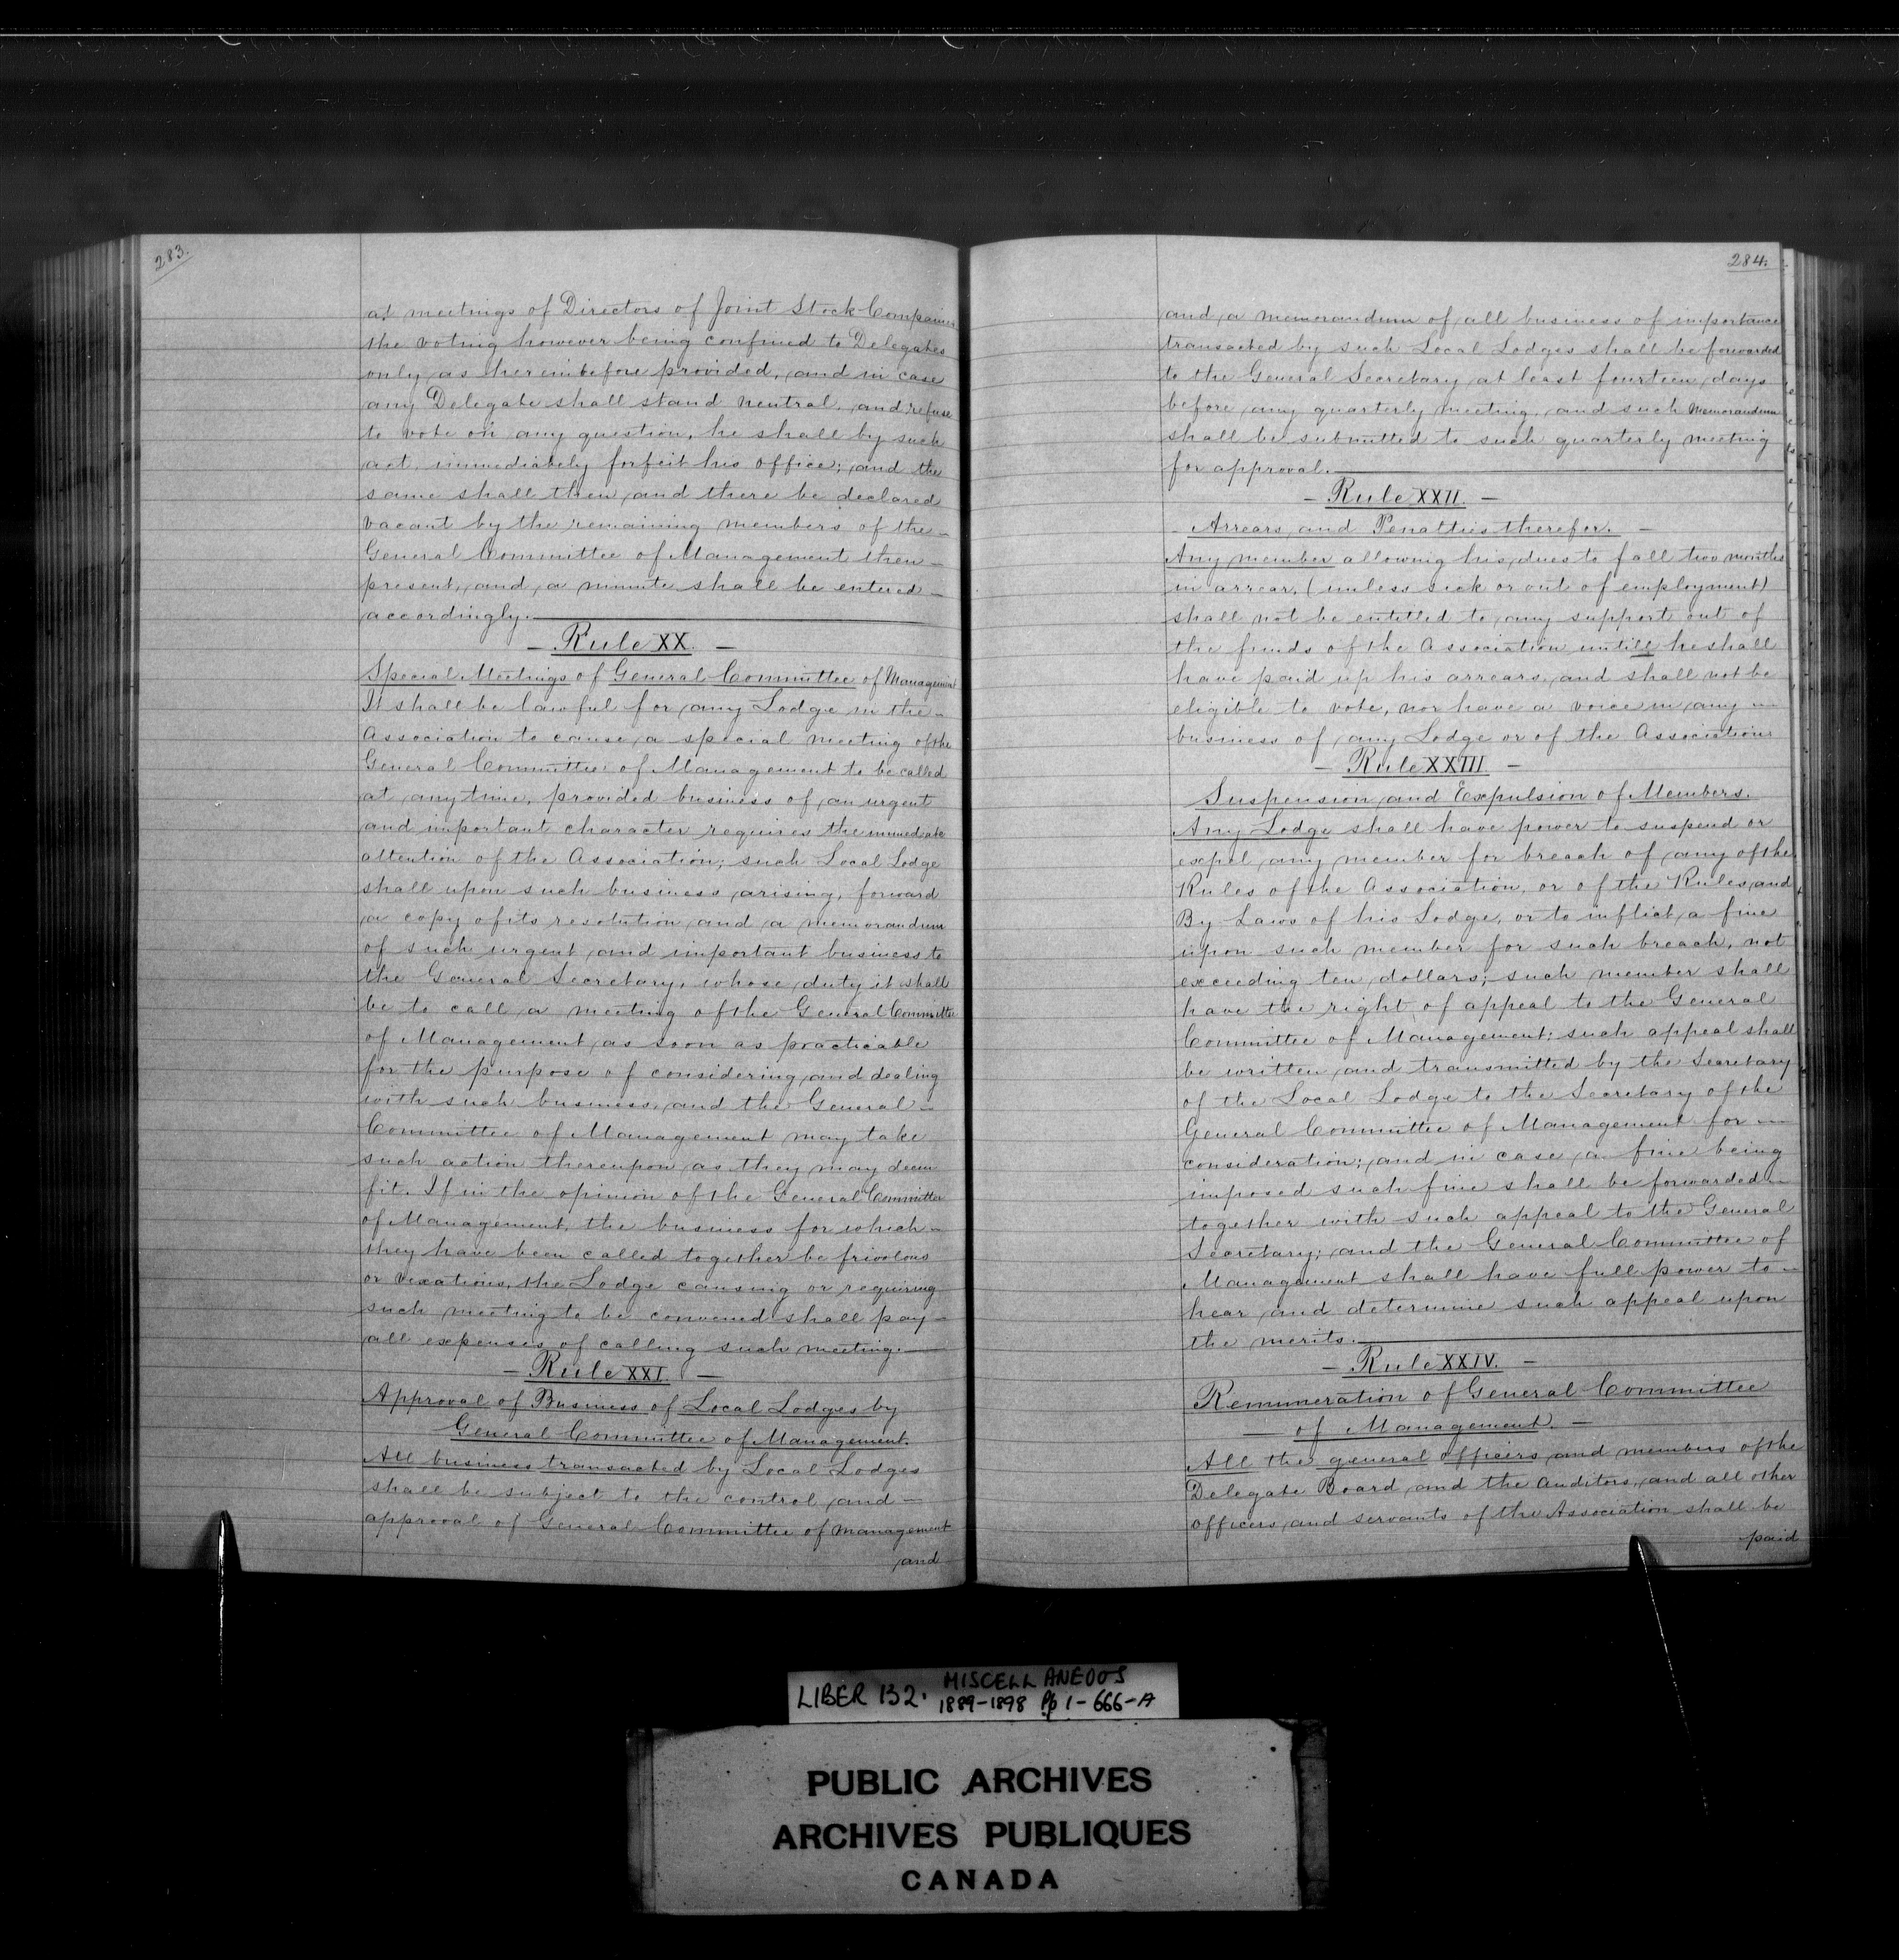 283.
at meetings of Directors of Joint Stock Companies
the voting however being confined to Delegates
only as hereinbefore provided, and in case
any Delegate shall stand neutral, and refuse
to vote on any question, he shall by such
act immediately forfeit his office; and the
same shall then and there be declared
vacant by the remaining members of the
General Committee of Management then
present, and a minute shall be entered
accordingly.
Rule XX.
Special Meetings of General Committee of Management
It shall be lawful for any Lodge in the
Association to cause a special meeting of the
General Committee of Management to be called
at any time, provided business of an urgent
and important character requires the immediate
attention of the Association; such Local Lodge
shall upon such business arising, forward
a copy of its resolution and a memorandum
of such urgent and important business to
the General Secretary, whose duty it shall
be to call a meeting of the General Committee
of Management as soon as practicable
for the purpose of considering and dealing
with such business, and the General
Committee of Management may take
such action thereupon as they may deem
fit. If in the opinion of the General Committee
of Management, the business for which
they have been called together be frivolous
or vexatious, the Lodge causing or requiring
such meeting to be convened shall pay
all expenses of calling such meeting.
Rule XXI.
Approval of Business of Local Lodges by
General Committee of Management.
All business transacted by Local Lodges
shall be subject to the control and
approval of General Committee of Management
and
284.
and a memorandum of all business of importance
transacted by such Local Lodges shall be forwarded
to the General Secretary at least fourteen days
before any quarterly meeting, and such Memorandum
shall be submitted to such quarterly meeting
for approval.
Rule XXII.
Arrears and Penalties therefor.
Any member allowing his dues to fall two months
in arrear, (unless sick or out of employment)
shall not be entitled to any support out of
the funds of the Association untill he shall
have paid up his arrears, and shall not be
eligible to vote, nor have a voice in any
business of any Lodge or of the Association.
Rule XXIII.
Suspension and Expulsion of Members.
Any Lodge shall have power to suspend or
expel any member for breach of any of the
Rules of the Association, or of the Rules and
By Laws of his Lodge, or to inflict a fine
upon such member for such breach, not
exceeding ten dollars; such member shall
have the right of appeal to the General
Committee of Management; such appeal shall
be written and transmitted by the Secretary
of the Local Lodge to the Secretary of the
General Committee of Management for
consideration; and in case a fine being
imposed such fine shall be forwarded
together with such appeal to the General
Secretary; and the General Committee of
Management shall have full power to
hear and determine such appeal upon
the merits.
Rule XXIV.
Remuneration of General Committee
of Management.
All the general officers and members of the
Delegate Board and the Auditors, and all other
officers and servants of the Association shall be
paid
LIBER 132. MISCELLANEOUS
1889-1898 Pp 1-666-A
PUBLIC ARCHIVES
ARCHIVES PUBLIQUES
CANADA